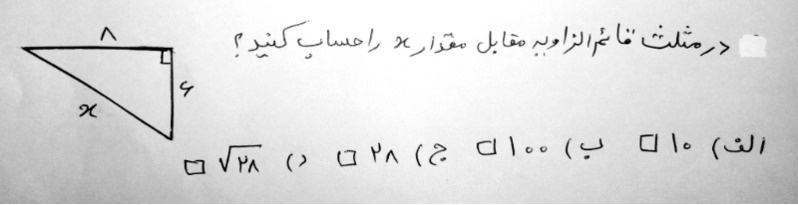 در مثلث قائم الزاویه مقابل مقدار x را حساب کنید؟
۸
۶
x
الف) ۱۰ □ ب) ۱۰۰ □ ج) ۲۸ □ د) √۲۸ □